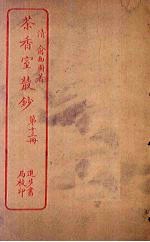 清 俞曲園著
茶香室叢鈔 第十二冊
進步書
局校印